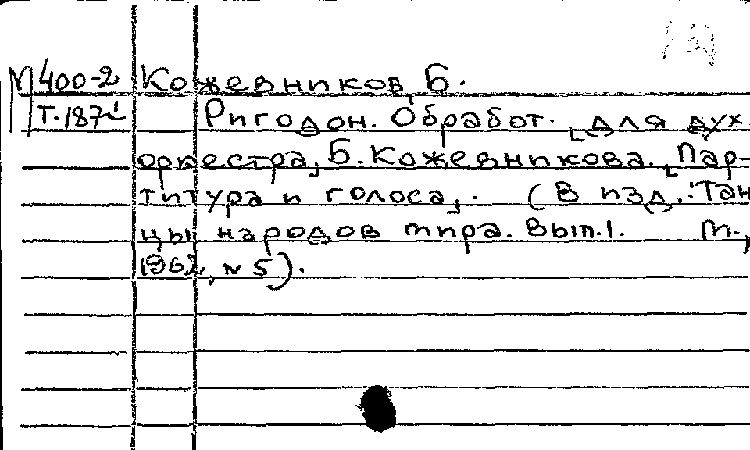 М 400-2 Кожевников, Б.
Т.187 Ригодон. Обработ. [для дух.
оркестра] Б. Кожевникова. [Пар-
титура и голоса]. (В изд.: Тан
цы народов мира. Вып.1. М.,
1962, № 5).